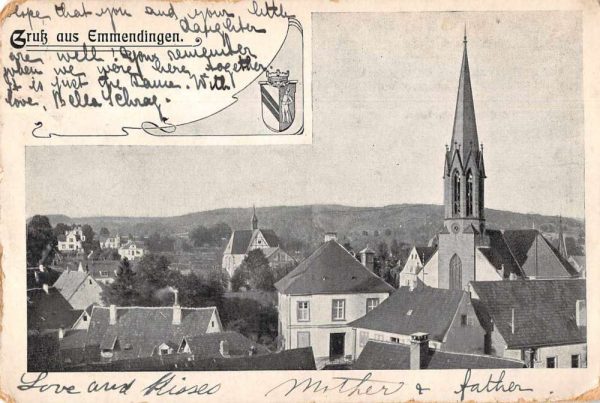 hope that you and your little
daughter
Gruß aus Emmendingen.
are well! Do your remember
when we were here together.
It is just the same. With
love, Bella Schrag.
Love and Kisses Mother & father